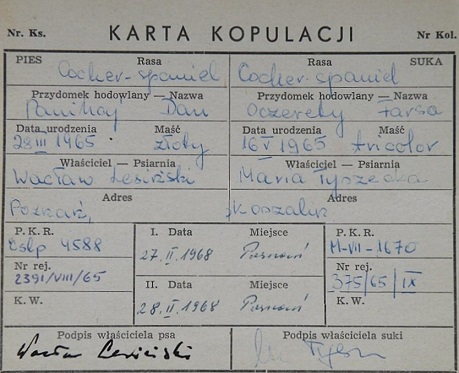 Nr. Ks. KARTA KOPULACJI Nr Kol.
PIES Rasa Rasa SUKA
Cocker-spaniel Cocker-spaniel
Przydomek hodowlany — Nazwa Przydomek hodowlany — Nazwa
Dan Oczerety Farsa
Data urodzenia Maść Data urodzenia Maść
28 III 1965 złoty 16 V 1965 tricolor
Właściciel — Psiarnia Właściciel — Psiarnia
Wacław Lesiński Maria
Adres Adres
Poznań, Koszalin
P. K. R. I. Data Miejsce P. K. R.
4588 27. II. 1968 Poznań M-VII-1670
Nr rej. Nr rej.
2391/VIII/65 II. Data Miejsce 375/65/IX
K. W. 28. II. 1968 Poznań K. W.
Podpis właściciela psa Podpis właściciela suki
Wacław Lesiński